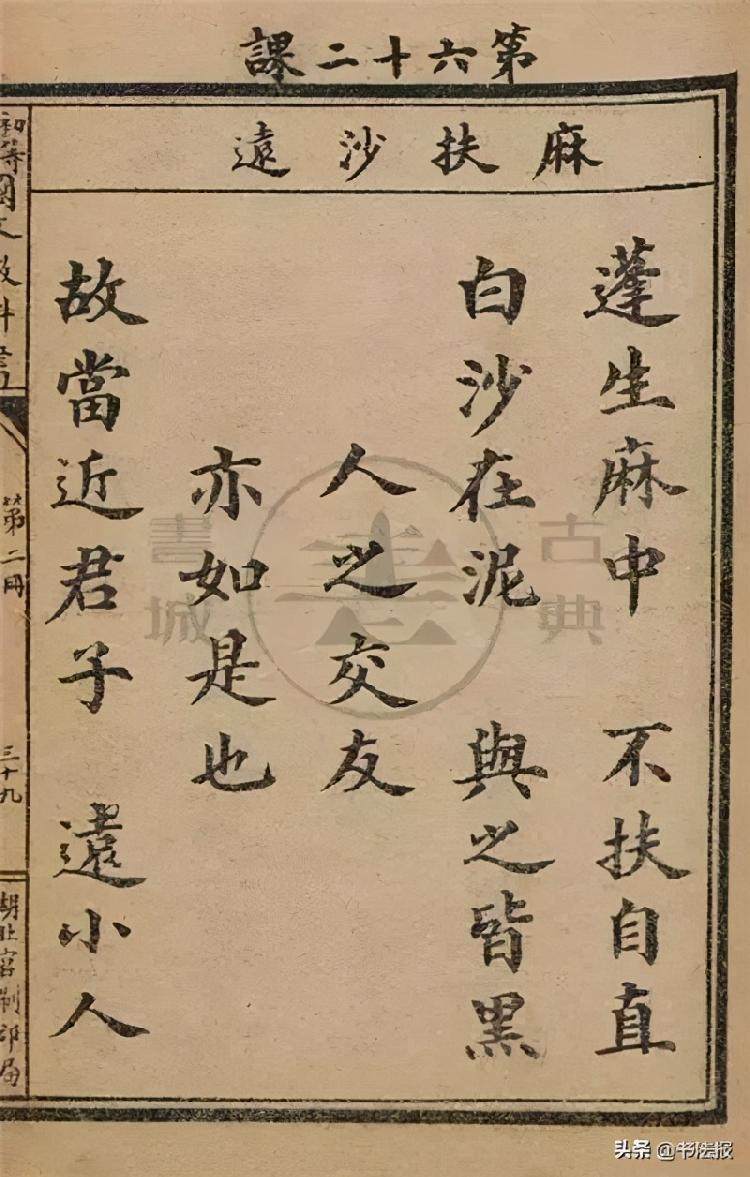 第六十二課
麻扶沙遠
蓬生麻中 不扶自直
白沙在泥 與之皆黑
人之交友
亦如是也
故當近君子 遠小人
第二冊
三十九
古典
書城
头条 @书法报